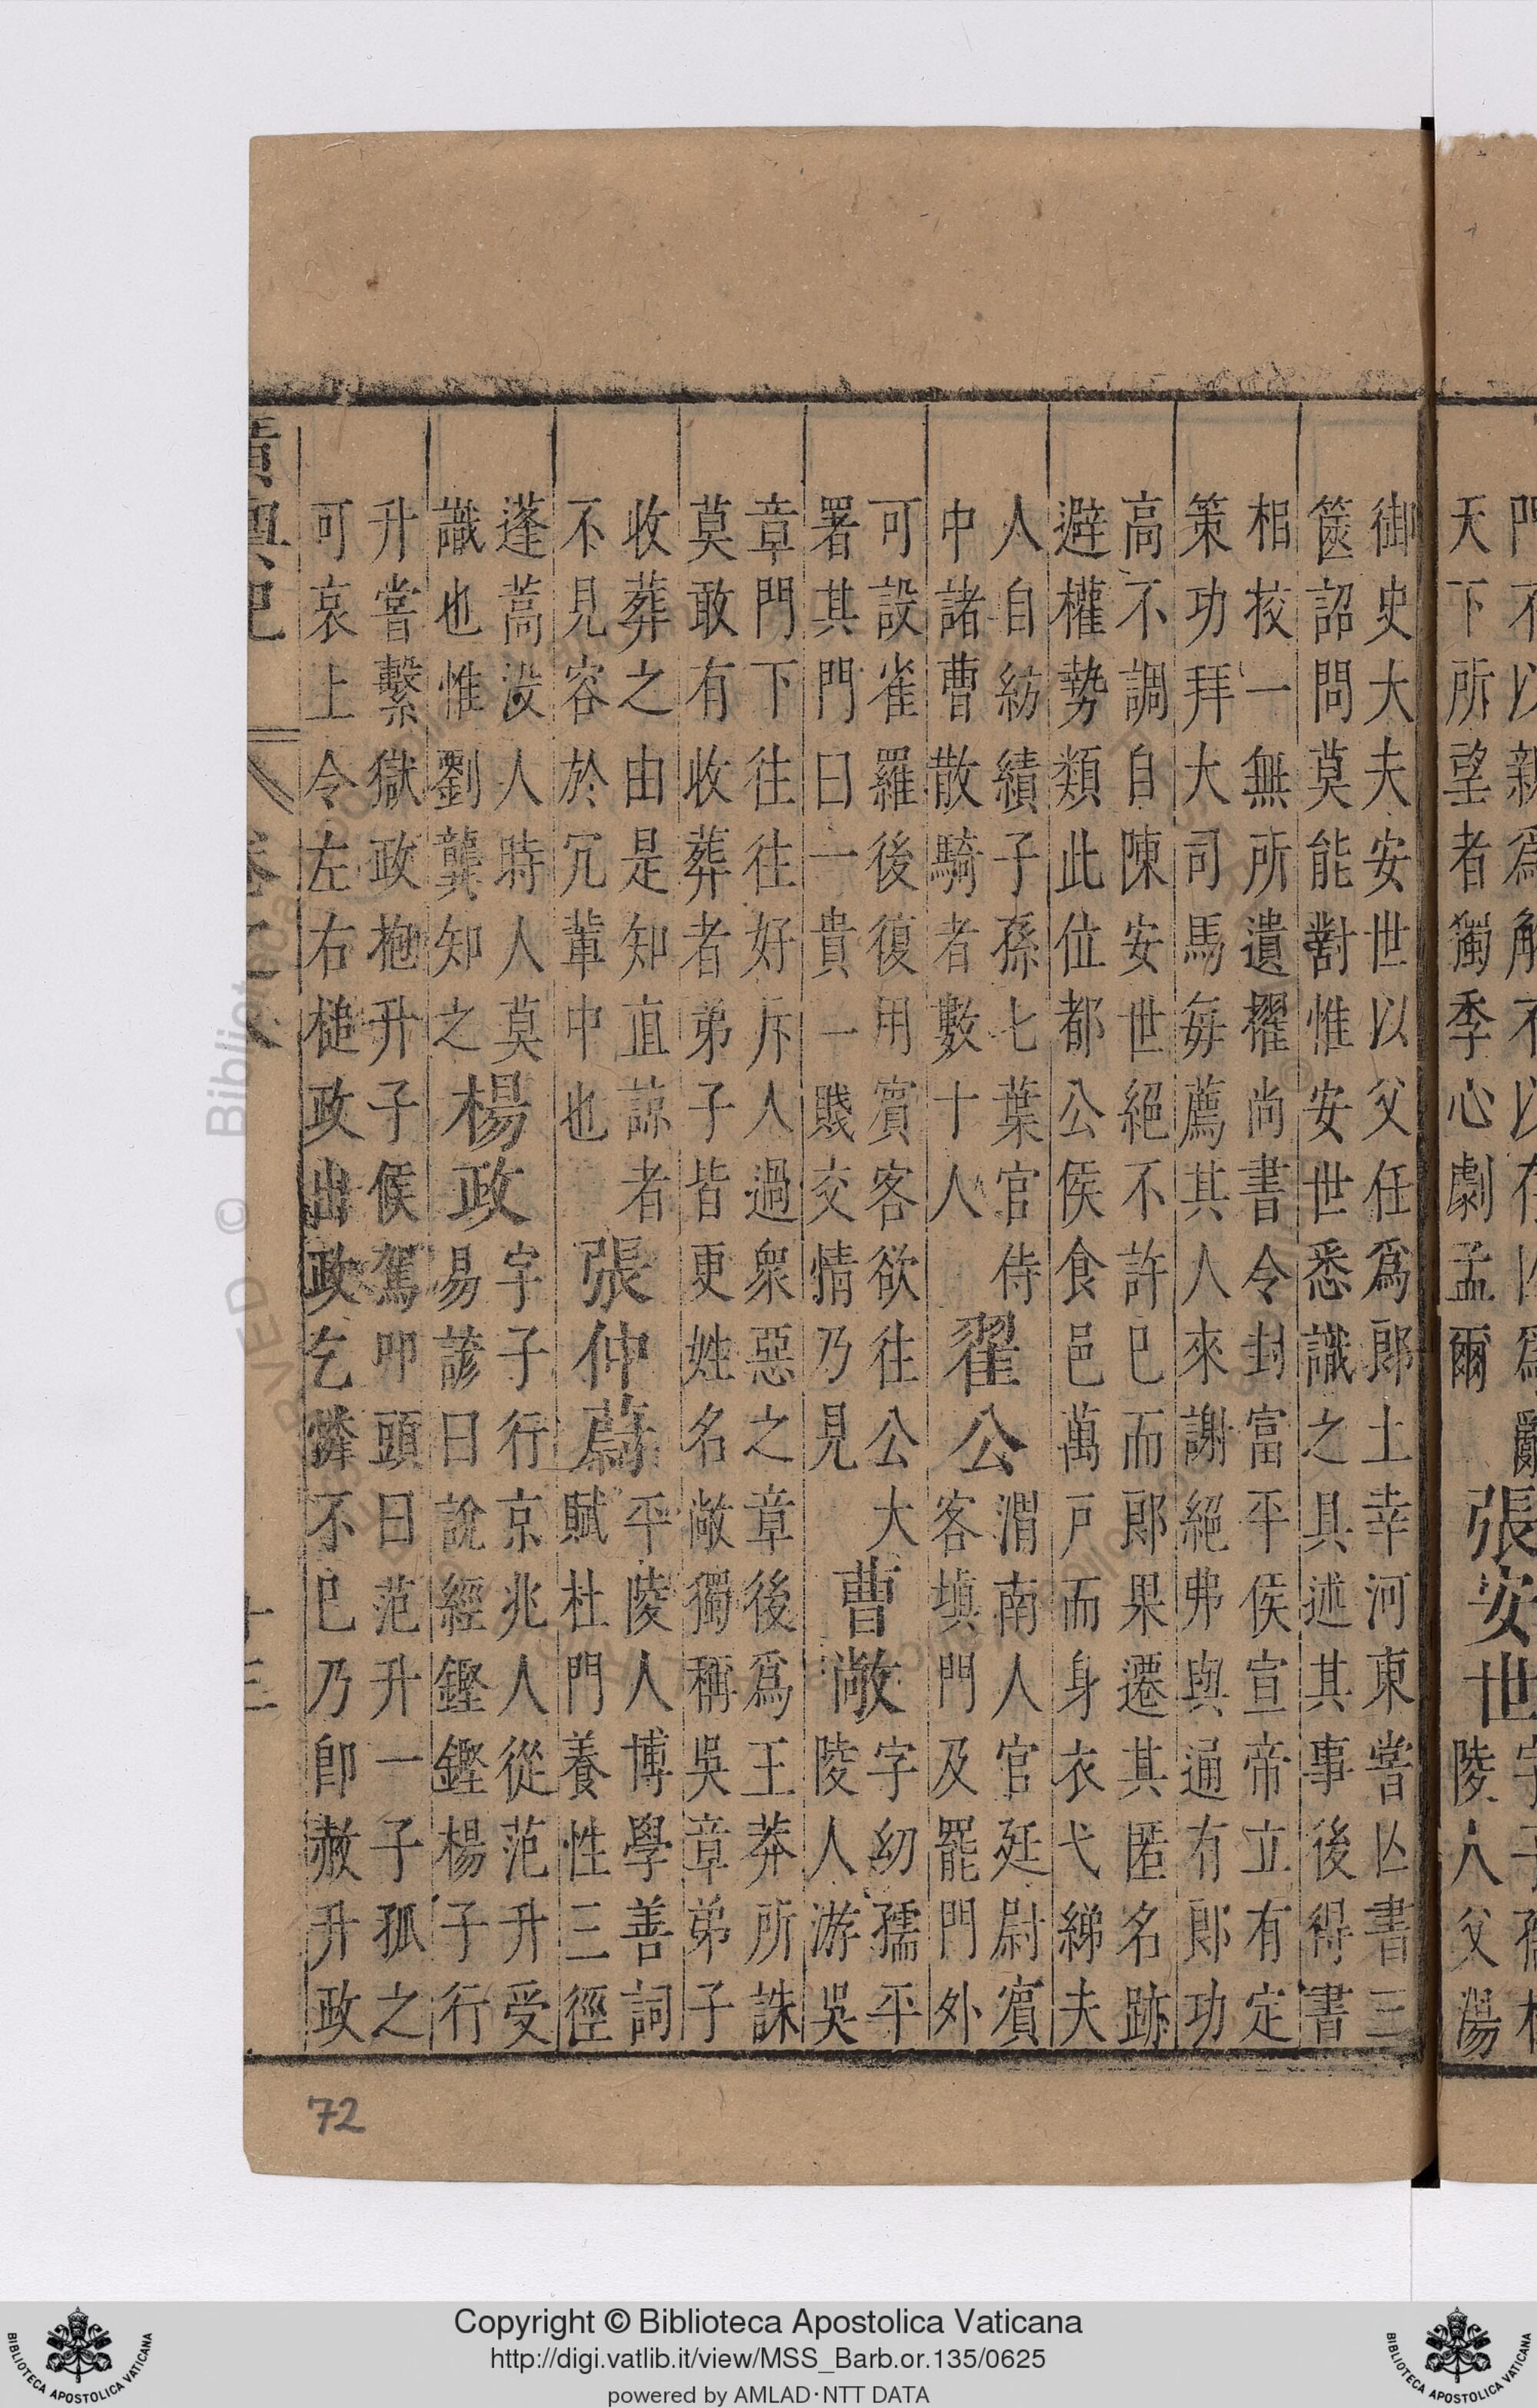 天下所望者獨季心劇孟爾
張安世
陵人父湯
御史大夫安世以父任爲郎上幸河東嘗亡書三
篋詔問莫能對惟安世悉識之具述其事後得書
相挍一無所遺擢尚書令封富平侯宣帝立有定
策功拜大司馬每薦其人來謝絕弗與通有郎功
高不調自陳安世絕不許已而郎果遷其匿名跡
避權勢類此位都公侯食邑萬戸而身衣弋綈夫
人自紡績子孫七葉官侍
中諸曹散騎者數十人
翟公
渭南人官延尉賔
客填門及罷門外
可設雀羅後復用賔客欲往公大
署其門曰一貴一賤交情乃見
曹敞
字幼孺平
陵人游吳
章門下往往好斥人過衆惡之章後爲王莽所誅
莫敢有收葬者弟子皆更姓名敞獨稱吳章弟子
收葬之由是知直諒者
不見容於冗輩中也
張仲蔚
平陵人博學善詞
賦杜門養性三徑
蓬蒿沒人時人莫
識也惟劉龔知之
楊政
字子行京兆人從范升受
易諺曰說經鏗鏗楊子行
升嘗繫獄政抱升子候駕叩頭曰范升一子孤之
可哀上令左右槌政出政乞憐不已乃卽赦升政
72
Copyright © Biblioteca Apostolica Vaticana
http://digi.vatlib.it/view/MSS_Barb.or.135/0625
powered by AMLAD·NTT DATA
BIBLIOTECA APOSTOLICA VATICANA
BIBLIOTECA APOSTOLICA VATICANA